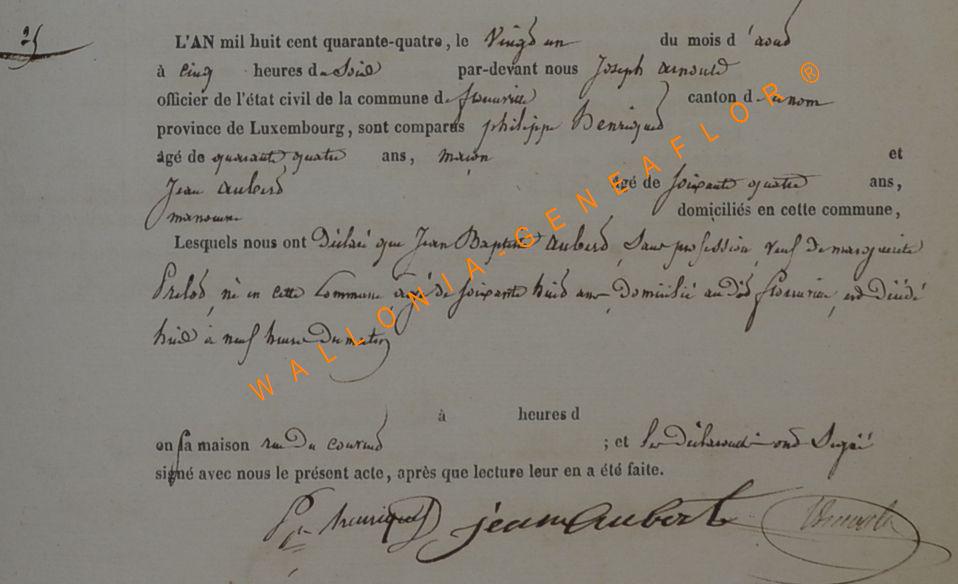 25
L'AN mil huit cent quarante-quatre, le Vingt un du mois d'août
à cinq heures du Soir par-devant nous Joseph arnould
officier de l'état civil de la commune de canton d
province de Luxembourg, sont comparus philippe Henriquet
âgé de quarante quatre ans, maçon et
Jean aubert âgé de soixante quatre ans,
manoeuvre domiciliés en cette commune,
Lesquels nous ont Déclaré que Jean Baptiste aubert, Sans profession, veuf de marguerite
né en cette Commune âgé de soixante huit ans Domicilié audit est décédé
à neuf heures du matin
à heures d
en sa maison rue du ; et les déclarants ont Signé
signé avec nous le présent acte, après que lecture leur en a été faite.
Ph henriquet jean Aubert
WALLONIA-GENEAFLOR®